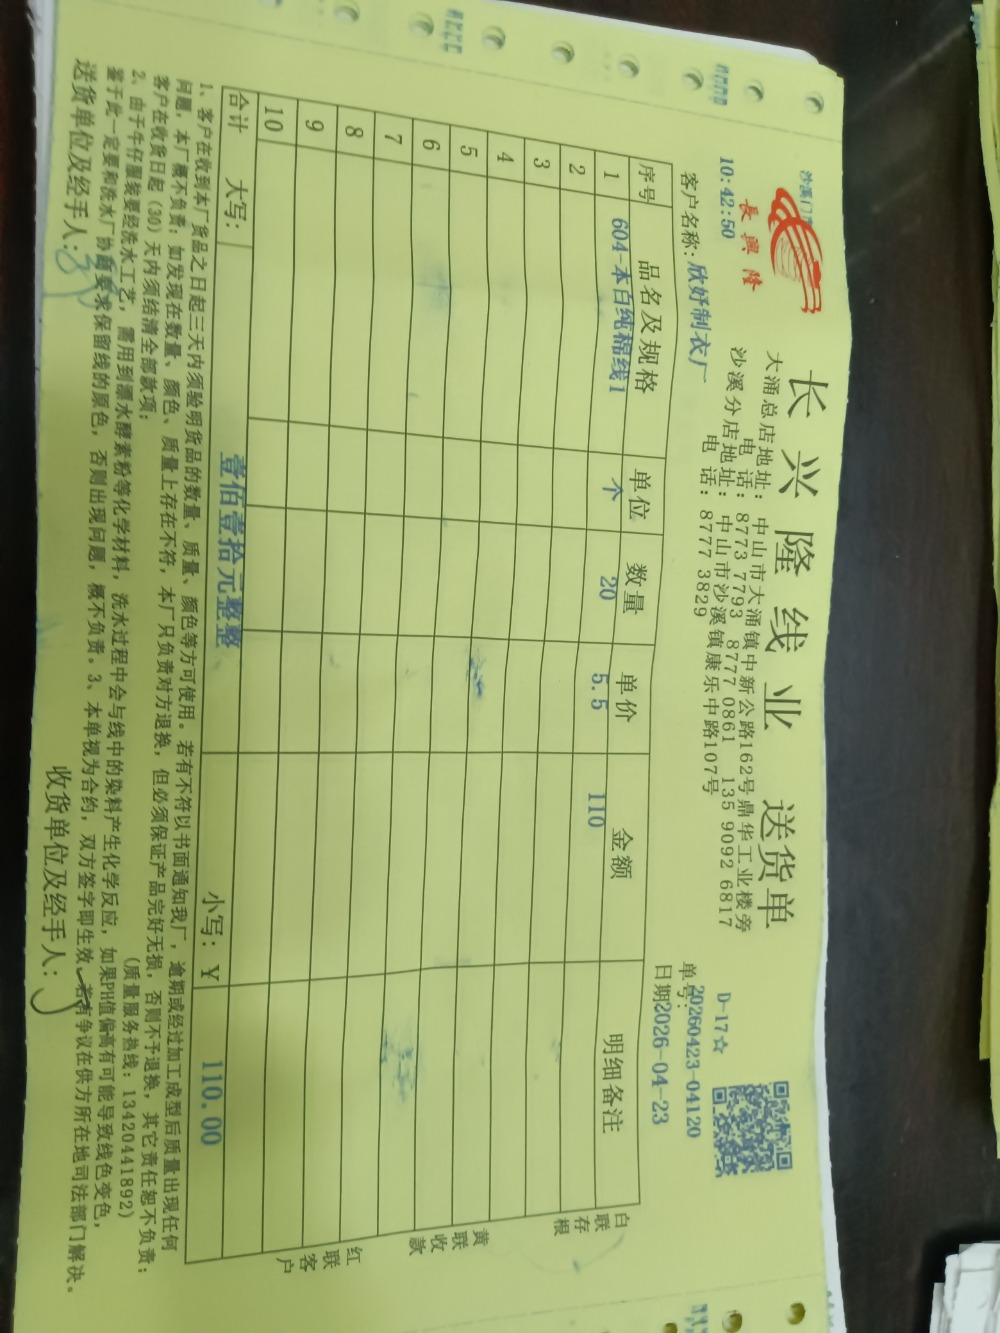 長興隆
长兴隆线业 送货单
大涌总店地址：中山市大涌镇中新公路162号鼎华工业楼旁
电 话：8773 7793 8777 0861 135 9092 6817
沙溪分店地址：中山市沙溪镇康乐中路107号
电 话：8777 3829
沙溪门
10:42:50
D-17☆
单号：20260423-04120
客户名称：欣妤制衣厂
日期2026-04-23
序号 品名及规格 单位 数量 单价 金额 明细备注
1 604-本白纯棉线1 个 20 5.5 110
2
3
4
5
6
7
8
9
10
合计 大写： 壹佰壹拾元整整 小写：￥ 110.00
白联存根
黄联收款
红联客户
1、客户在收到本厂货品之日起三天内须验明货品的数量、质量、颜色等方可使用。若有不符以书面通知我厂，逾期或经过加工成型后质量出现任何
问题，本厂概不负责；如发现在数量、颜色、质量上存在不符，本厂只负责对方退换，但必须保证产品完好无损，否则不予退换，其它责任恕不负责；
客户在收货日起（30）天内须结清全部款项；
(质量服务热线：13420441892)
2、由于牛仔服装要经洗水工艺，需用到漂水酵素粉等化学材料，洗水过程中会与线中的染料产生化学反应，如果PH值偏高有可能导致线色变色，
鉴于此一定要和洗水厂协商要求保留线的原色，否则出现问题，概不负责。3、本单视为合约，双方签字即生效，若有争议在供方所在地司法部门解决。
送货单位及经手人：
收货单位及经手人：